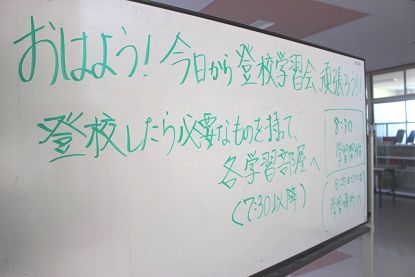 おはよう！今日から登校学習会 頑張ろう！
登校したら必要なものを持って、
各学習部屋へ
(7:30以降)
8:30
学習開始